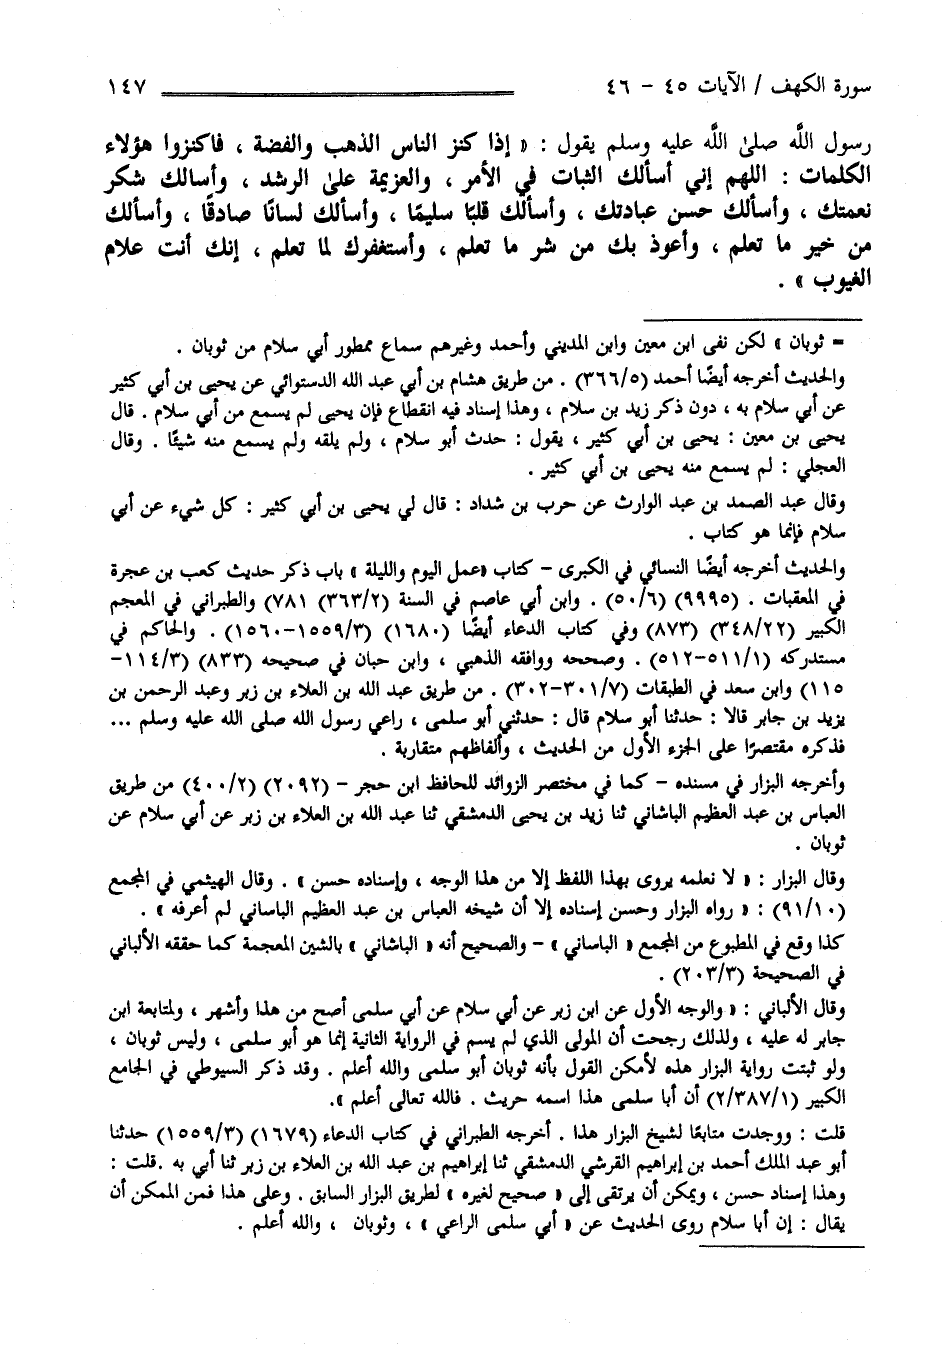 سورة الكهف / الآيات ٤٥ - ٤٦ ١٤٧
رسول اللَّه صلىٰ اللَّه عليه وسلم يقول : « إذا كنز الناس الذهب والفضة ، فاكنزوا هؤلاء
الكلمات : اللهم إني أسألك الثبات في الأمر ، والعزيمة علىٰ الرشد ، وأسالك شكر
نعمتك ، وأسألك حسن عبادتك ، وأسألك قلبًا سليمًا ، وأسألك لسانًا صادقًا ، وأسألك
من خير ما تعلم ، وأعوذ بك من شر ما تعلم ، وأستغفرك لما تعلم ، إنك أنت علام
الغيوب » .
= ثوبان » لكن نفى ابن معين وابن المديني وأحمد وغيرهم سماع ممطور أبي سلام من ثوبان .
والحديث أخرجه أيضًا أحمد (٣٦٦/٥) . من طريق هشام بن أبي عبد الله الدستوائي عن يحيى بن أبي كثير
عن أبي سلام به ، دون ذكر زيد بن سلام ، وهذا إسناد فيه انقطاع فإن يحيى لم يسمع من أبي سلام . قال
يحيى بن معين : يحيى بن أبي كثير ، يقول : حدث أبو سلام ، ولم يلقه ولم يسمع منه شيئًا . وقال
العجلي : لم يسمع منه يحيى بن أبي كثير .
وقال عبد الصمد بن عبد الوارث عن حرب بن شداد : قال لي يحيى بن أبي كثير : كل شيء عن أبي
سلام فإنما هو كتاب .
والحديث أخرجه أيضًا النسائي في الكبرى - كتاب «عمل اليوم والليلة » باب ذكر حديث كعب بن عجرة
في المعقبات . (٩٩٩٥) (٥٠/٦) . وابن أبي عاصم في السنة (٣٦٣/٢) ٧٨١) والطبراني في المعجم
الكبير (٣٤٨/٢٢) (٨٧٣) وفي كتاب الدعاء أيضًا (١٦٨٠) (١٥٥٩/٣-١٥٦٠) . والحاكم في
مستدركه (٥١١/١-٥١٢) . وصححه ووافقه الذهبي ، وابن حبان في صحيحه (٨٣٣) (١١٤/٣-
١١٥) وابن سعد في الطبقات (٣٠١/٧-٣٠٢) . من طريق عبد الله بن العلاء بن زبر وعبد الرحمن بن
يزيد بن جابر قالا : حدثنا أبو سلام قال : حدثني أبو سلمى ، راعي رسول الله صلى الله عليه وسلم ...
فذكره مقتصرًا على الجزء الأول من الحديث ، وألفاظهم متقاربة .
وأخرجه البزار في مسنده - كما في مختصر الزوائد للحافظ ابن حجر - (٢٠٩٢) (٤٠٠/٢) من طريق
العباس بن عبد العظيم الباشاني ثنا زيد بن يحيى الدمشقي ثنا عبد الله بن العلاء بن زبر عن أبي سلام عن
ثوبان .
وقال البزار : « لا نعلمه يروى بهذا اللفظ إلا من هذا الوجه ، وإسناده حسن » . وقال الهيثمي في المجمع
(٩١/١٠) : « رواه البزار وحسن إسناده إلا أن شيخه العباس بن عبد العظيم الباساني لم أعرفه » .
كذا وقع في المطبوع من المجمع « الباساني » - والصحيح أنه « الباشاني » بالشين المعجمة كما حققه الألباني
في الصحيحة (٢٠٣/٣) .
وقال الألباني : « والوجه الأول عن ابن زبر عن أبي سلام عن أبي سلمى أصح من هذا وأشهر ، ولمتابعة ابن
جابر له عليه ، ولذلك رجحت أن المولى الذي لم يسم في الرواية الثانية إنما هو أبو سلمى ، وليس ثوبان ،
ولو ثبتت رواية البزار هذه لأمكن القول بأنه ثوبان أبو سلمى والله أعلم . وقد ذكر السيوطي في الجامع
الكبير (٢/٣٨٧/١) أن أبا سلمى هذا اسمه حريث . فالله تعالى أعلم ».
قلت : ووجدت متابعًا لشيخ البزار هذا . أخرجه الطبراني في كتاب الدعاء (١٦٧٩) (١٥٥٩/٣) حدثنا
أبو عبد الملك أحمد بن إبراهيم القرشي الدمشقي ثنا إبراهيم بن عبد الله بن العلاء بن زبر ثنا أبي به .قلت :
وهذا إسناد حسن ، ويمكن أن يرتقى إلى « صحيح لغيره » لطريق البزار السابق . وعلى هذا فمن الممكن أن
يقال : إن أبا سلام روى الحديث عن « أبي سلمى الراعي » ، وثوبان ، والله أعلم .